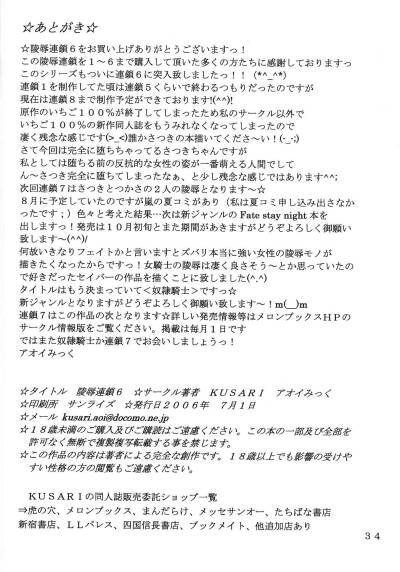 ☆あとがき☆
☆陵辱連鎖６をお買い上げありがとうございますっ！
この陵辱連鎖を１～６まで購入して頂いた多くの方たちに感謝しておりますっ
このシリーズもついに連鎖６に突入致しましたっ！！（*^_^*）
連鎖１を制作してた頃は連鎖５くらいで終わるつもりだったのですが
現在は連鎖８まで制作予定ができております!(^^)!
原作のいちご１００％が終了してしまったため私のサークル以外で
いちご１００％の新作同人誌をもうみれなくなってしまったので
凄く残念な感じです(>_<)誰かさつきの本描いてくださ～い！(-_-;)
さて今回は完全に堕ちちゃってるさつきちゃんですが
私としては堕ちる前の反抗的な女性の姿が一番萌える人間でして
ん～さつき完全に堕ちてしまったなぁ、と少し残念な感じではあります^^;
次回連鎖７はさつきとつかさの２人の陵辱となります～☆
８月に予定していたのですが嵐の夏コミがあり（私は夏コミ申し込み出さなか
ったです；）色々と考えた結果…次は新ジャンルの Fate stay night 本を
出しますっ！発売は１０月初旬とまた期間があきますがどうぞよろしく御願い
致します～(^^)/
何故いきなりフェイトかと言いますとズバリ本当に強い女性の陵辱モノが
描きたくなったからですっ！女騎士の陵辱は凄く良さそう～とか思っていたの
で好きだったセイバーの作品を描くことに致しました(^.^)
タイトルはもう決まっていて＜奴隷騎士＞ですっ☆
新ジャンルとなりますがどうぞよろしく御願い致します～！m(__)m
連鎖７はこの作品の次となります☆詳しい発売情報等はメロンブックスＨＰの
サークル情報版をご覧ください。掲載は毎月１日です
ではまた奴隷騎士か連鎖７でお会いしましょうっ！
アオイみっく
☆タイトル　陵辱連鎖６　☆サークル著者　ＫＵＳＡＲＩ　アオイみっく
☆印刷所　サンライズ　☆発行日２００６年　７月１日
☆メール kusari.aoi@docomo.ne.jp
☆１８歳未満のご購入及びご購読はご遠慮ください。この本の一部及び全部を
許可なく無断で複製複写転載する事を禁じます。
☆この作品の内容は著者による完全な創作です。１８歳以上でも影響の受けや
すい性格の方の閲覧もご遠慮ください。
ＫＵＳＡＲＩの同人誌販売委託ショップ一覧
⇒虎の穴、メロンブックス、まんだらけ、メッセサンオー、たちばな書店
新宿書店、ＬＬパレス、四国信長書店、ブックメイト、他追加店あり
３４